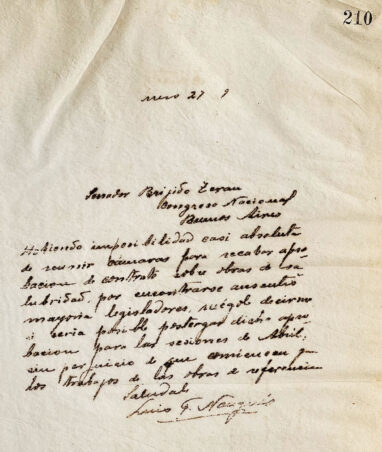 210
27 9
Senador Brijido Teran
Congreso Nacional
Buenos Aires
Habiendo imposibilidad casi absoluta
de reunir camaras para recabar apro
bacion de contrato sobre obras de sa
lubridad, por encontrarse ausente
mayoria legisladores, decirme
si seria posible postergar dicha apro
bacion para las sesiones de Abril,
sin perjuicio de que comiencen
los trabajos de las obras de referencia
Saludale
Luis F. Nougués